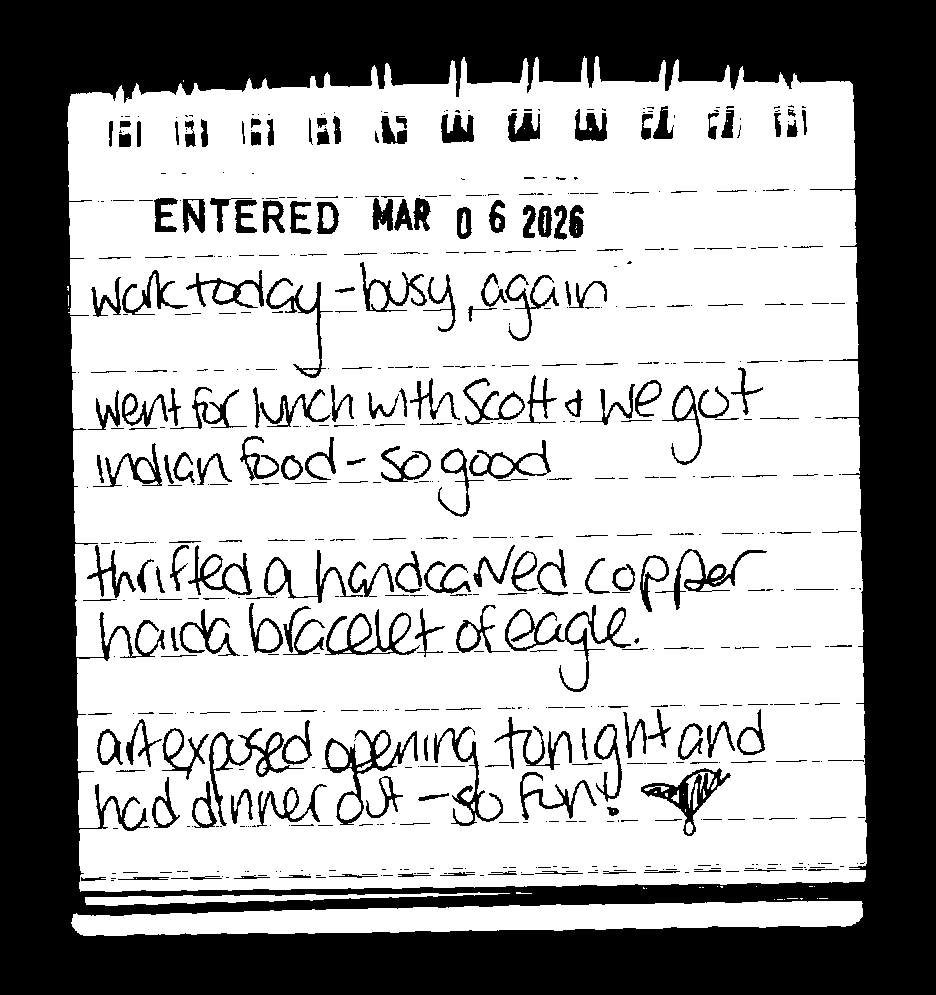 ENTERED MAR 06 2026
work today - busy, again
went for lunch with Scott & we got
indian food - so good
thrifted a handcarved copper
haida bracelet of eagle.
art exposed opening tonight and
had dinner out - so fun!